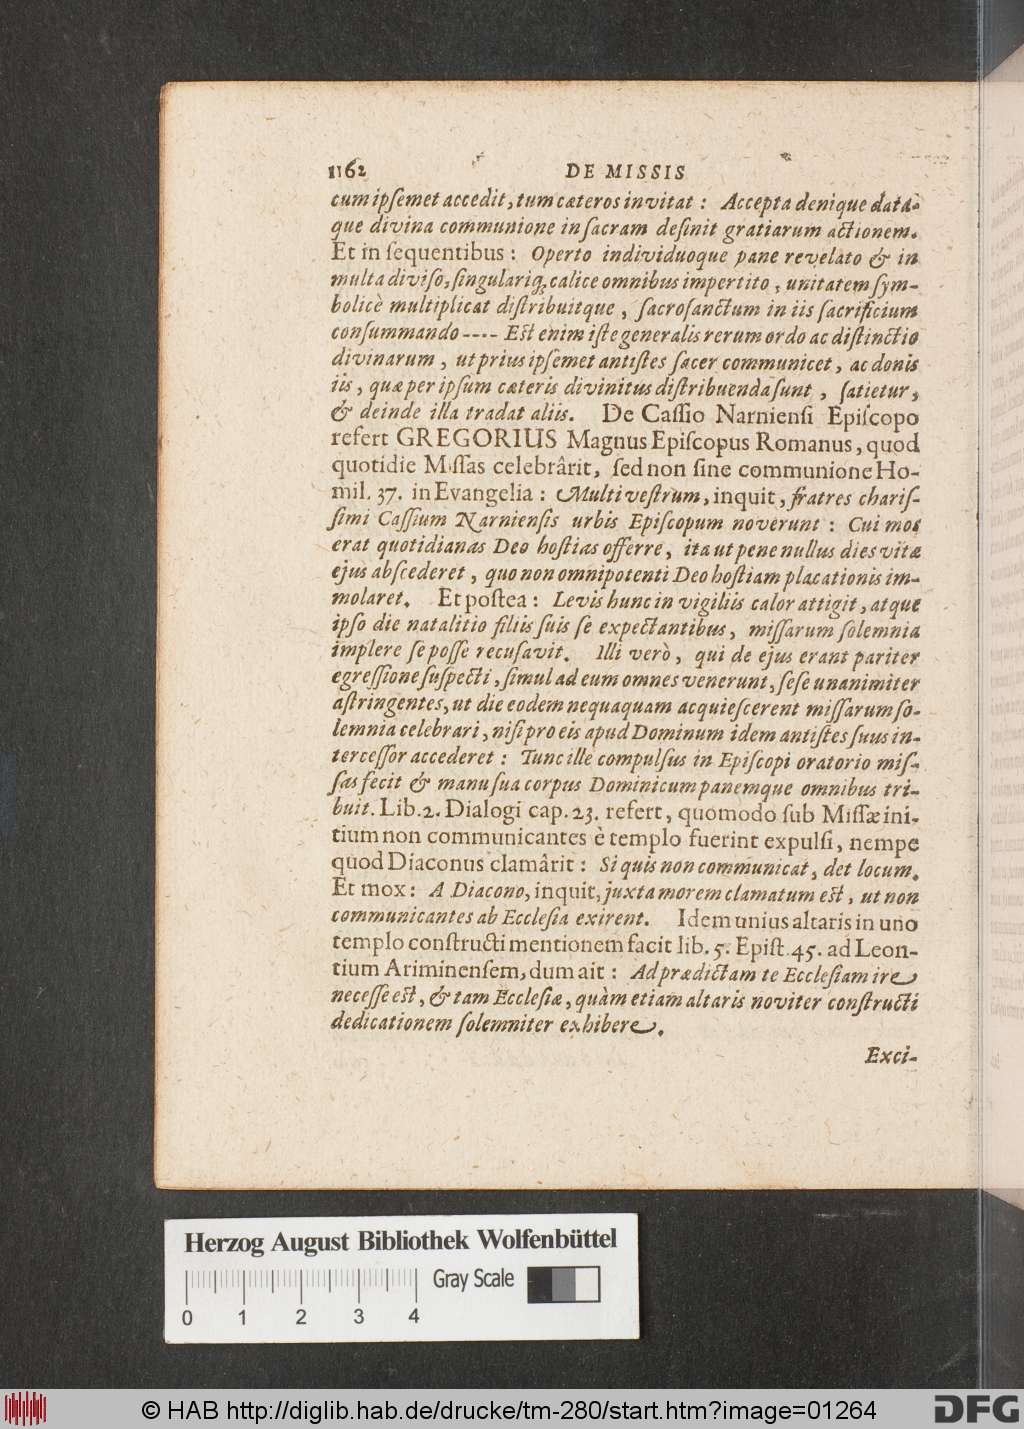 1162 DE MISSIS
cum ipſemet accedit, tum cæteros invitat : Accepta denique data-
que divina communione in ſacram deſinit gratiarum actionem.
Et in ſequentibus : Operto individuoque pane revelato & in
multa diviſo, ſingulariq; calice omnibus impertito, unitatem ſym-
bolicè multiplicat diſtribuitque, ſacroſanctum in iis ſacrificium
conſummando ---- Eſt enim iſte generalis rerum ordo ac diſtinctio
divinarum, ut prius ipſemet antiſtes ſacer communicet, ac donis
iis, quæ per ipſum cæteris divinitus diſtribuenda ſunt, ſatietur,
& deinde illa tradat aliis. De Caſſio Narnienſi Epiſcopo
refert GREGORIUS Magnus Epiſcopus Romanus, quod
quotidie Miſſas celebrârit, ſed non ſine communione Ho-
mil. 37. in Evangelia : Multi veſtrum, inquit, fratres chariſ-
ſimi Caſſium Narnienſis urbis Epiſcopum noverunt : Cui mos
erat quotidianas Deo hoſtias offerre, ita ut pene nullus dies vitæ
ejus abſcederet, quo non omnipotenti Deo hoſtiam placationis im-
molaret. Et poſtea : Levis hunc in vigiliis calor attigit, atque
ipſo die natalitio filiis ſuis ſe expectantibus, miſſarum ſolemnia
implere ſe poſſe recuſavit. Illi verò, qui de ejus erant pariter
egreſſione ſuſpecti, ſimul ad eum omnes venerunt, ſeſe unanimiter
aſtringentes, ut die eodem nequaquam acquieſcerent miſſarum ſo-
lemnia celebrari, niſi pro eis apud Dominum idem antiſtes ſuus in-
terceſſor accederet : Tunc ille compulſus in Epiſcopi oratorio miſ-
ſas fecit & manu ſua corpus Dominicum panemque omnibus tri-
buit. Lib. 2. Dialogi cap. 23. refert, quomodo ſub Miſſæ ini-
tium non communicantes è templo fuerint expulſi, nempe
quod Diaconus clamârit : Si quis non communicat, det locum.
Et mox : A Diacono, inquit, juxta morem clamatum eſt, ut non
communicantes ab Eccleſia exirent. Idem unius altaris in uno
templo conſtructi mentionem facit lib. 5. Epiſt. 45. ad Leon-
tium Ariminenſem, dum ait : Ad prædictam te Eccleſiam ire
neceſſe eſt, & tam Eccleſiæ, quàm etiam altaris noviter conſtructi
dedicationem ſolemniter exhibere.
Exci-
Herzog August Bibliothek Wolfenbüttel
Gray Scale
0 1 2 3 4
© HAB http://diglib.hab.de/drucke/tm-280/start.htm?image=01264
DFG